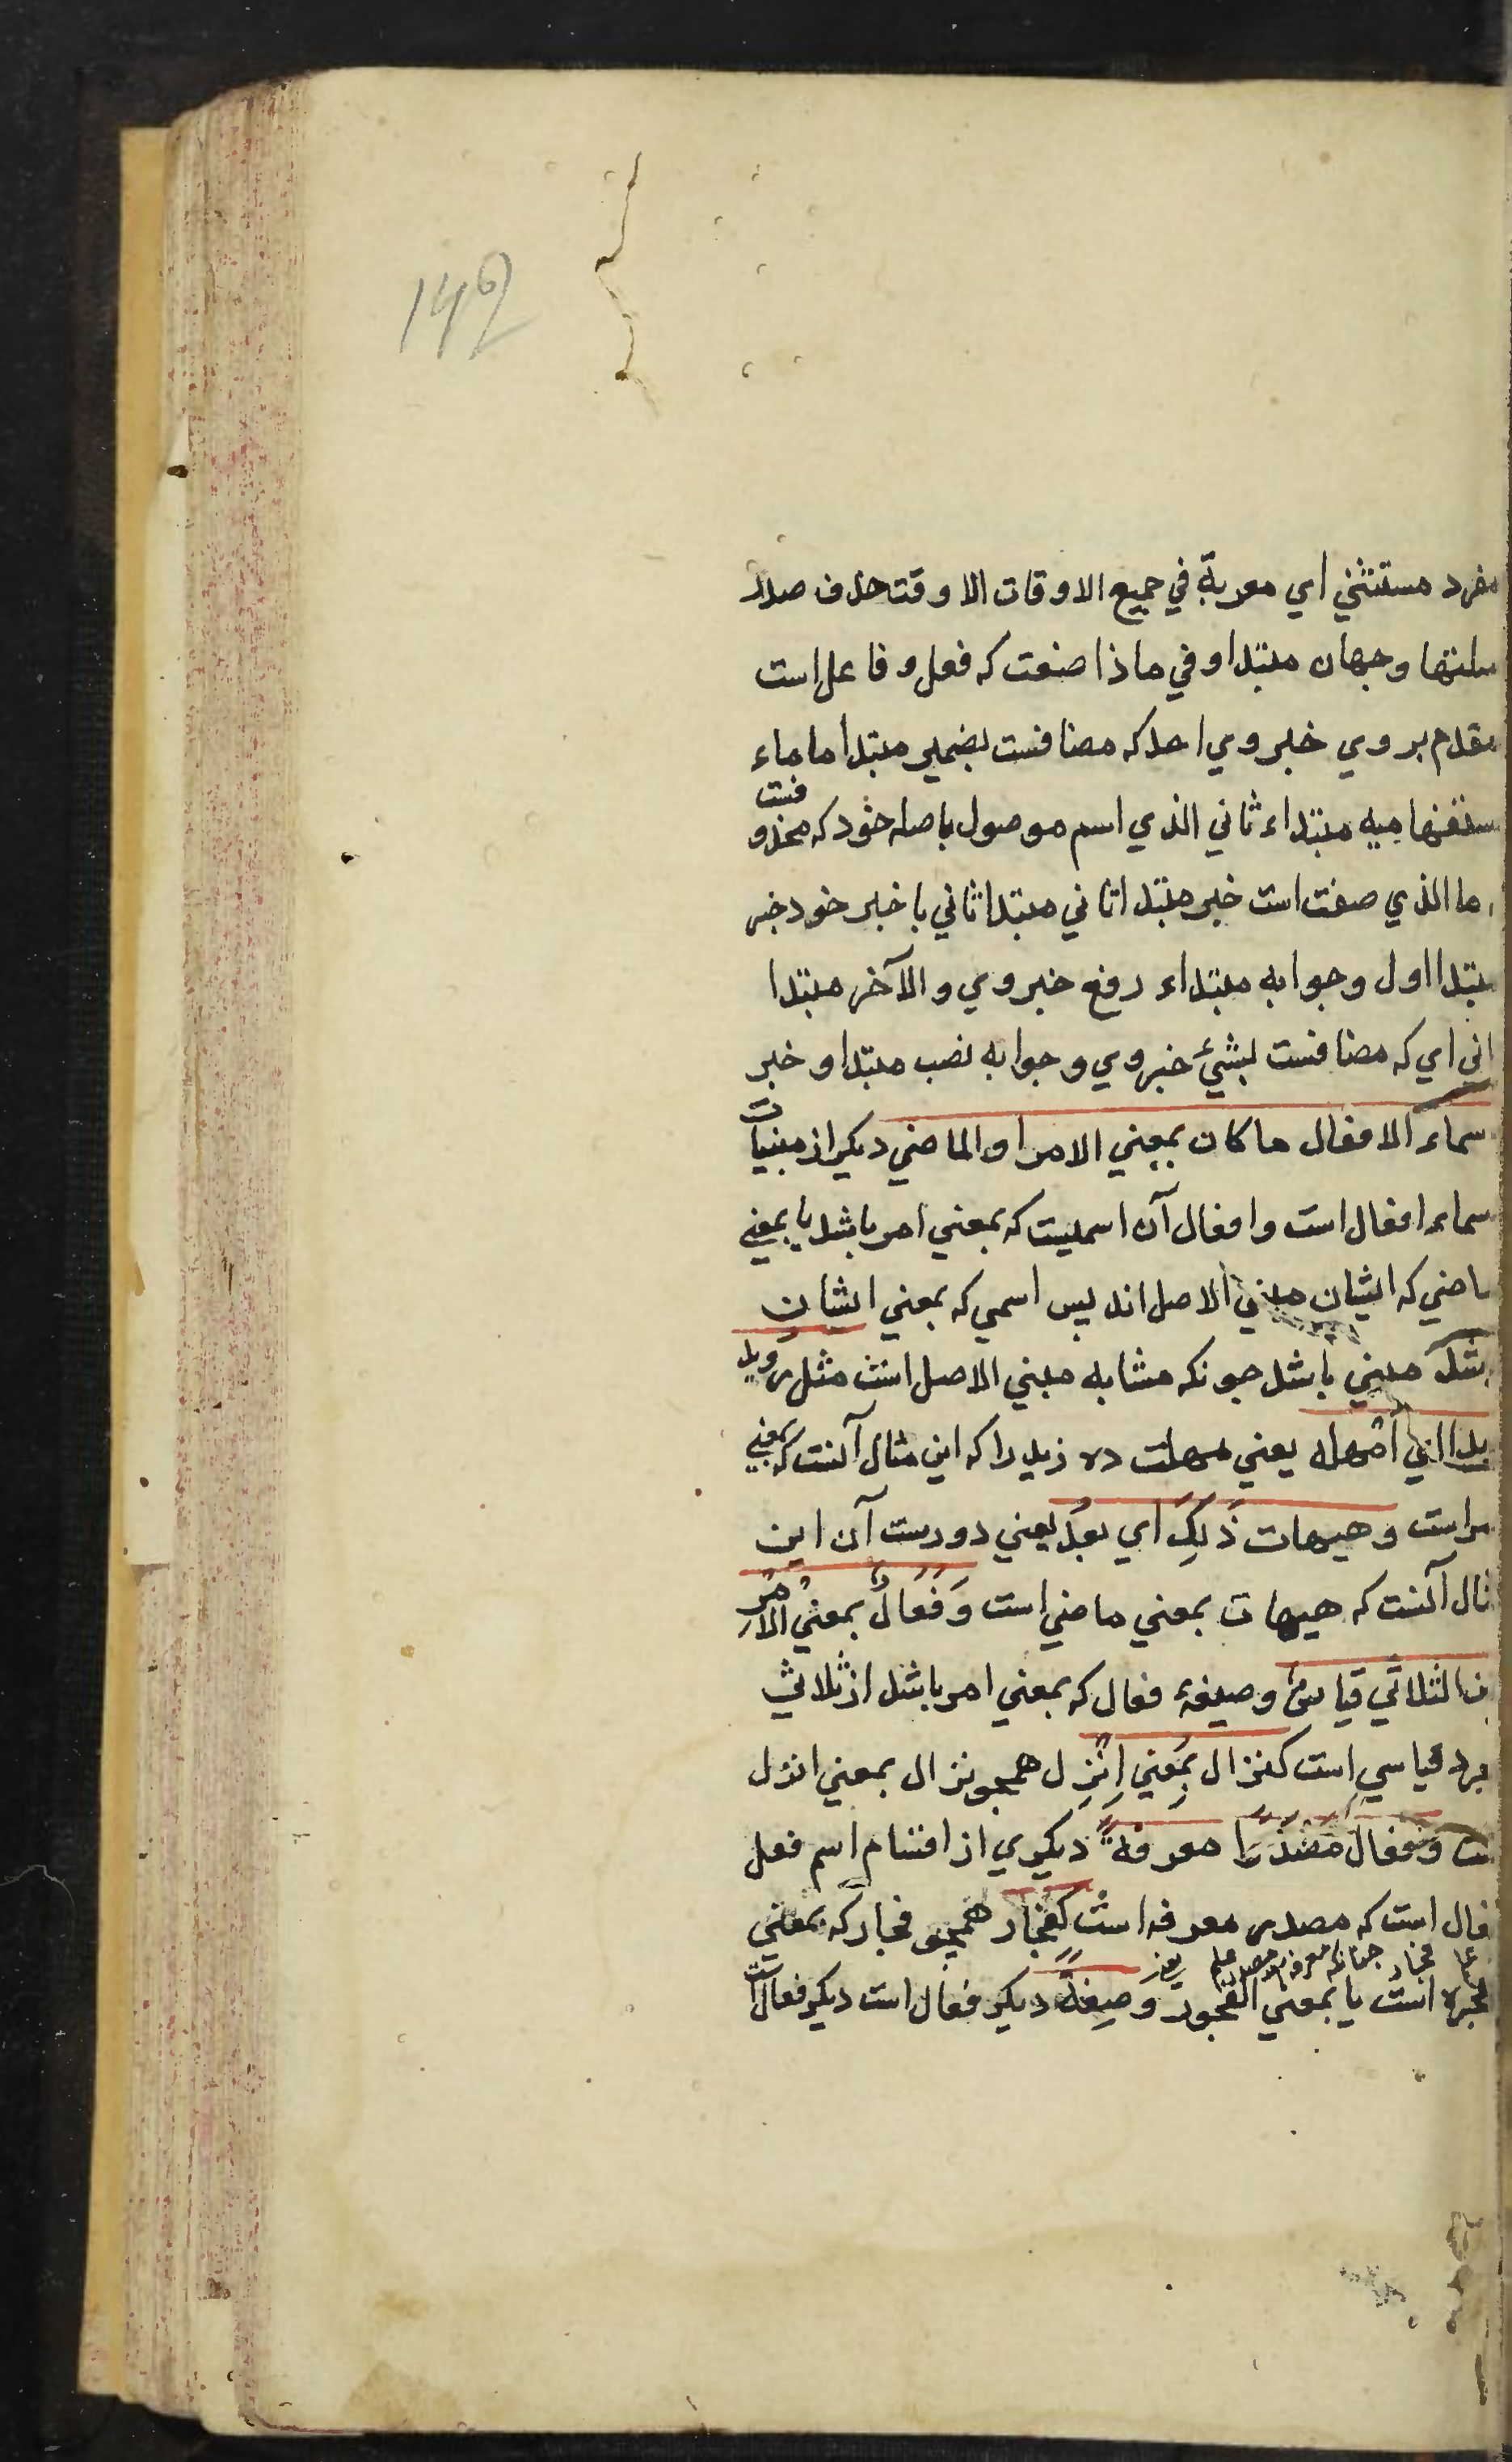 142
مفرد مستثني اي معربة في جميع الاوقات الا وقت حذف صدر
صلتها وجهان مبتدا وفي ماذا صنعت كه فعل و فاعل است
مقدم بروي خبر وي احد كه مضافست بضمير مبتدا ما ماء
ستفهاميه مبتداء ثاني الذي اسم موصول باصله خود كه محذوفست
ما الذي صفت است خبر مبتدا ثاني مبتدا ثاني با خبر خود خبر
مبتدا اول وجوابه مبتداء رفع خبر وي والآخر مبتدا
اني اي كه مضافست بشيء خبر وي وجوابه نصب مبتدا و خبر
سماء الافعال ما كان بمعني الامر او الماضي ديكر از مبنيات
سماء افعال است وافعال آن اسميست كه بمعني امر باشد يا بمعني
ماضي كه ايشان مبني الاصل اند پس اسمي كه بمعني ايشان
باشد مبني باشد جونكه مشابه مبني الاصل است مثل رويد
يدا اي امهله يعني مهلت ده زيد را كه اين مثال آنست كه بمعني
مراست وهيهات ذلك اي بعد يعني دورست آن اين
ثال آنست كه هيهات بمعني ماضي است وفعال بمعني الامر
من الثلاثي قياس وصيغهٔ فعال كه بمعني امر باشد از ثلاثي
جرد قياسي است كنزال بمعني انزل همجو نزال بمعني انزل
ست وفعال مصدرا معرفة ديكري از اقسام اسم فعل
فعال است كه مصدر معرفه است كفجار همجو فجار كه بمعني
فجره است يا بمعني الفجور وصفة ديكر فعال است ديكر فعال است